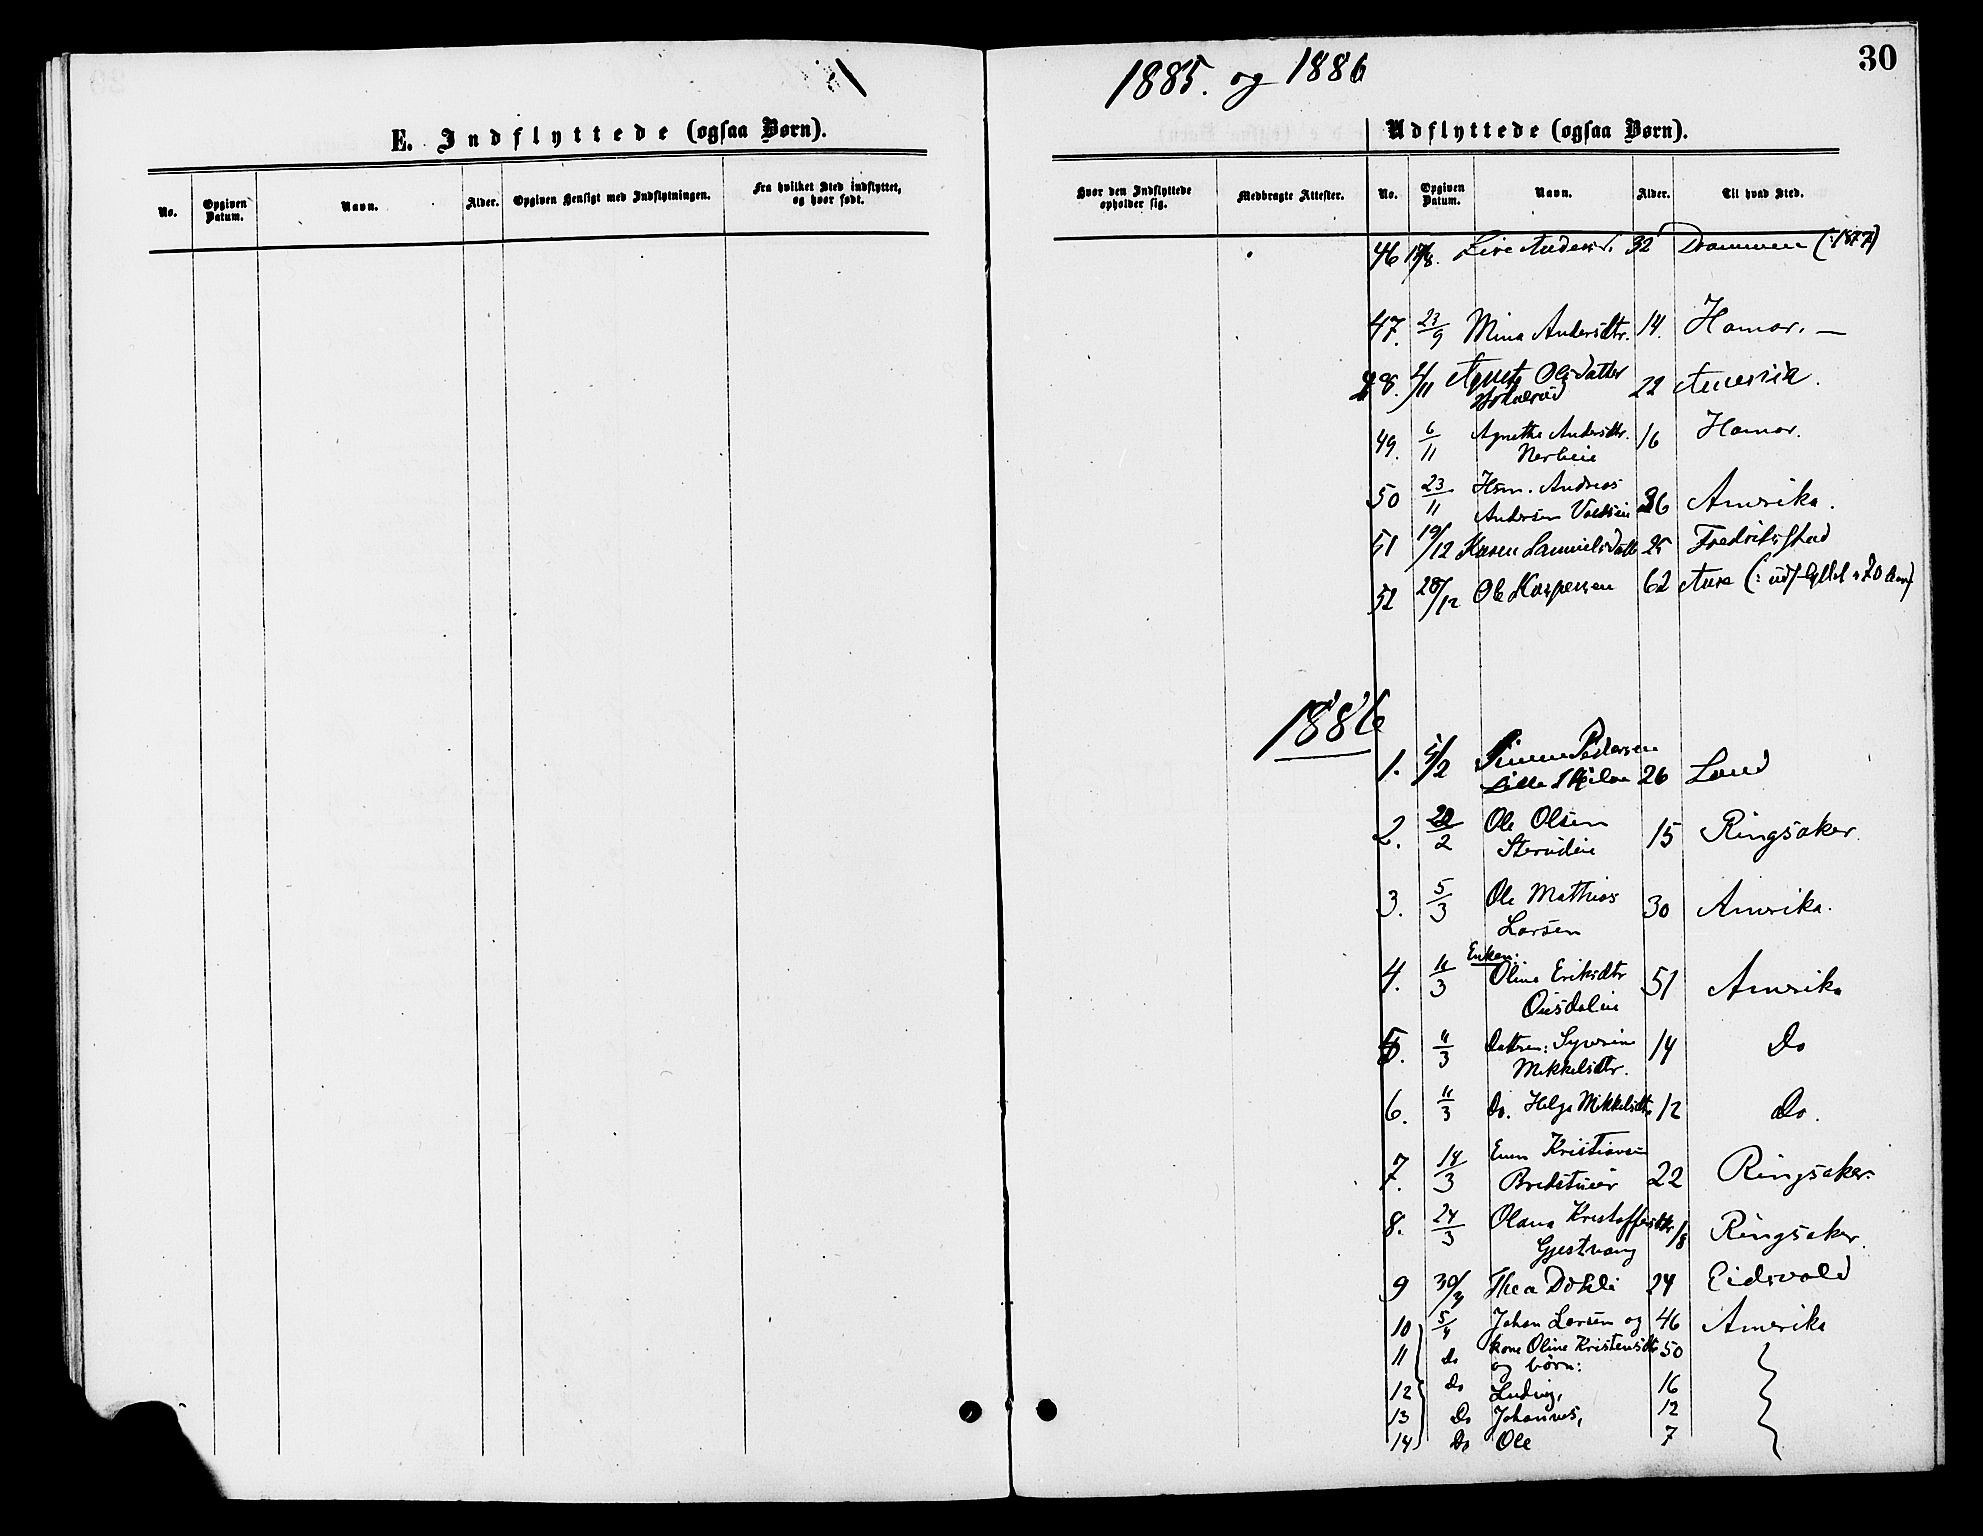 1885. og 1886
30
E. Indflyttede (ogsaa Børn).
Udflyttede (ogsaa Børn).
No. Opgiven Datum. Navn. Alder. Opgiven Hensigt med Indflytningen. Fra hvilket Sted indflyttet, og hvor født.
Hvor den Indflyttede opholder sig. Medbragte Attester. No. Opgiven Datum. Navn. Alder. Til hvad Sted.
46 /8. 32 Drammen (:1877)
47. 23/9 Mina Andersdtr. 14. Hamar. —
48. 2/11 Agnete Olsdatter 22 Amerika.
49. 6/11 Agnethe Andersdtr. 16 Hamar.
50 23/11 Hsm. Andreas
Andersen 36 Amerika.
51 19/12 Karen Samuelsdatt 25 Fredrikstad
52 28/12 Ole Kaspersen 62 (: udflyttet
1886
1. 5/2 Pedersen
Lille 26 Land
2. 22/2 Ole Olsen
15 Ringsaker.
3. 5/3 Ole Mathias
Larsen 30 Amerika.
4. 11/3 Enken:
Oline Eriksdtr 51 Amerika
5. 11/3 Datren: Syverine
Mikkelsdtr. 14 Do
6. 11/3 Do. Helga Mikkelsdtr 12 Do.
7. 18/3 Even Kristiansen
22 Ringsaker.
8. 24/3 Olava Kristoffersdtr
Gjestvang 18 Ringsaker.
9 30/3 Thea Dæhli 24 Eidsvold
10 5/4 Johan Larsen og 46 Amerika
11 do kone Oline Kristensdtr 50
og børn:
12 do Ludvig, 16
13 Do Johannes, 12
14 Do Ole 7